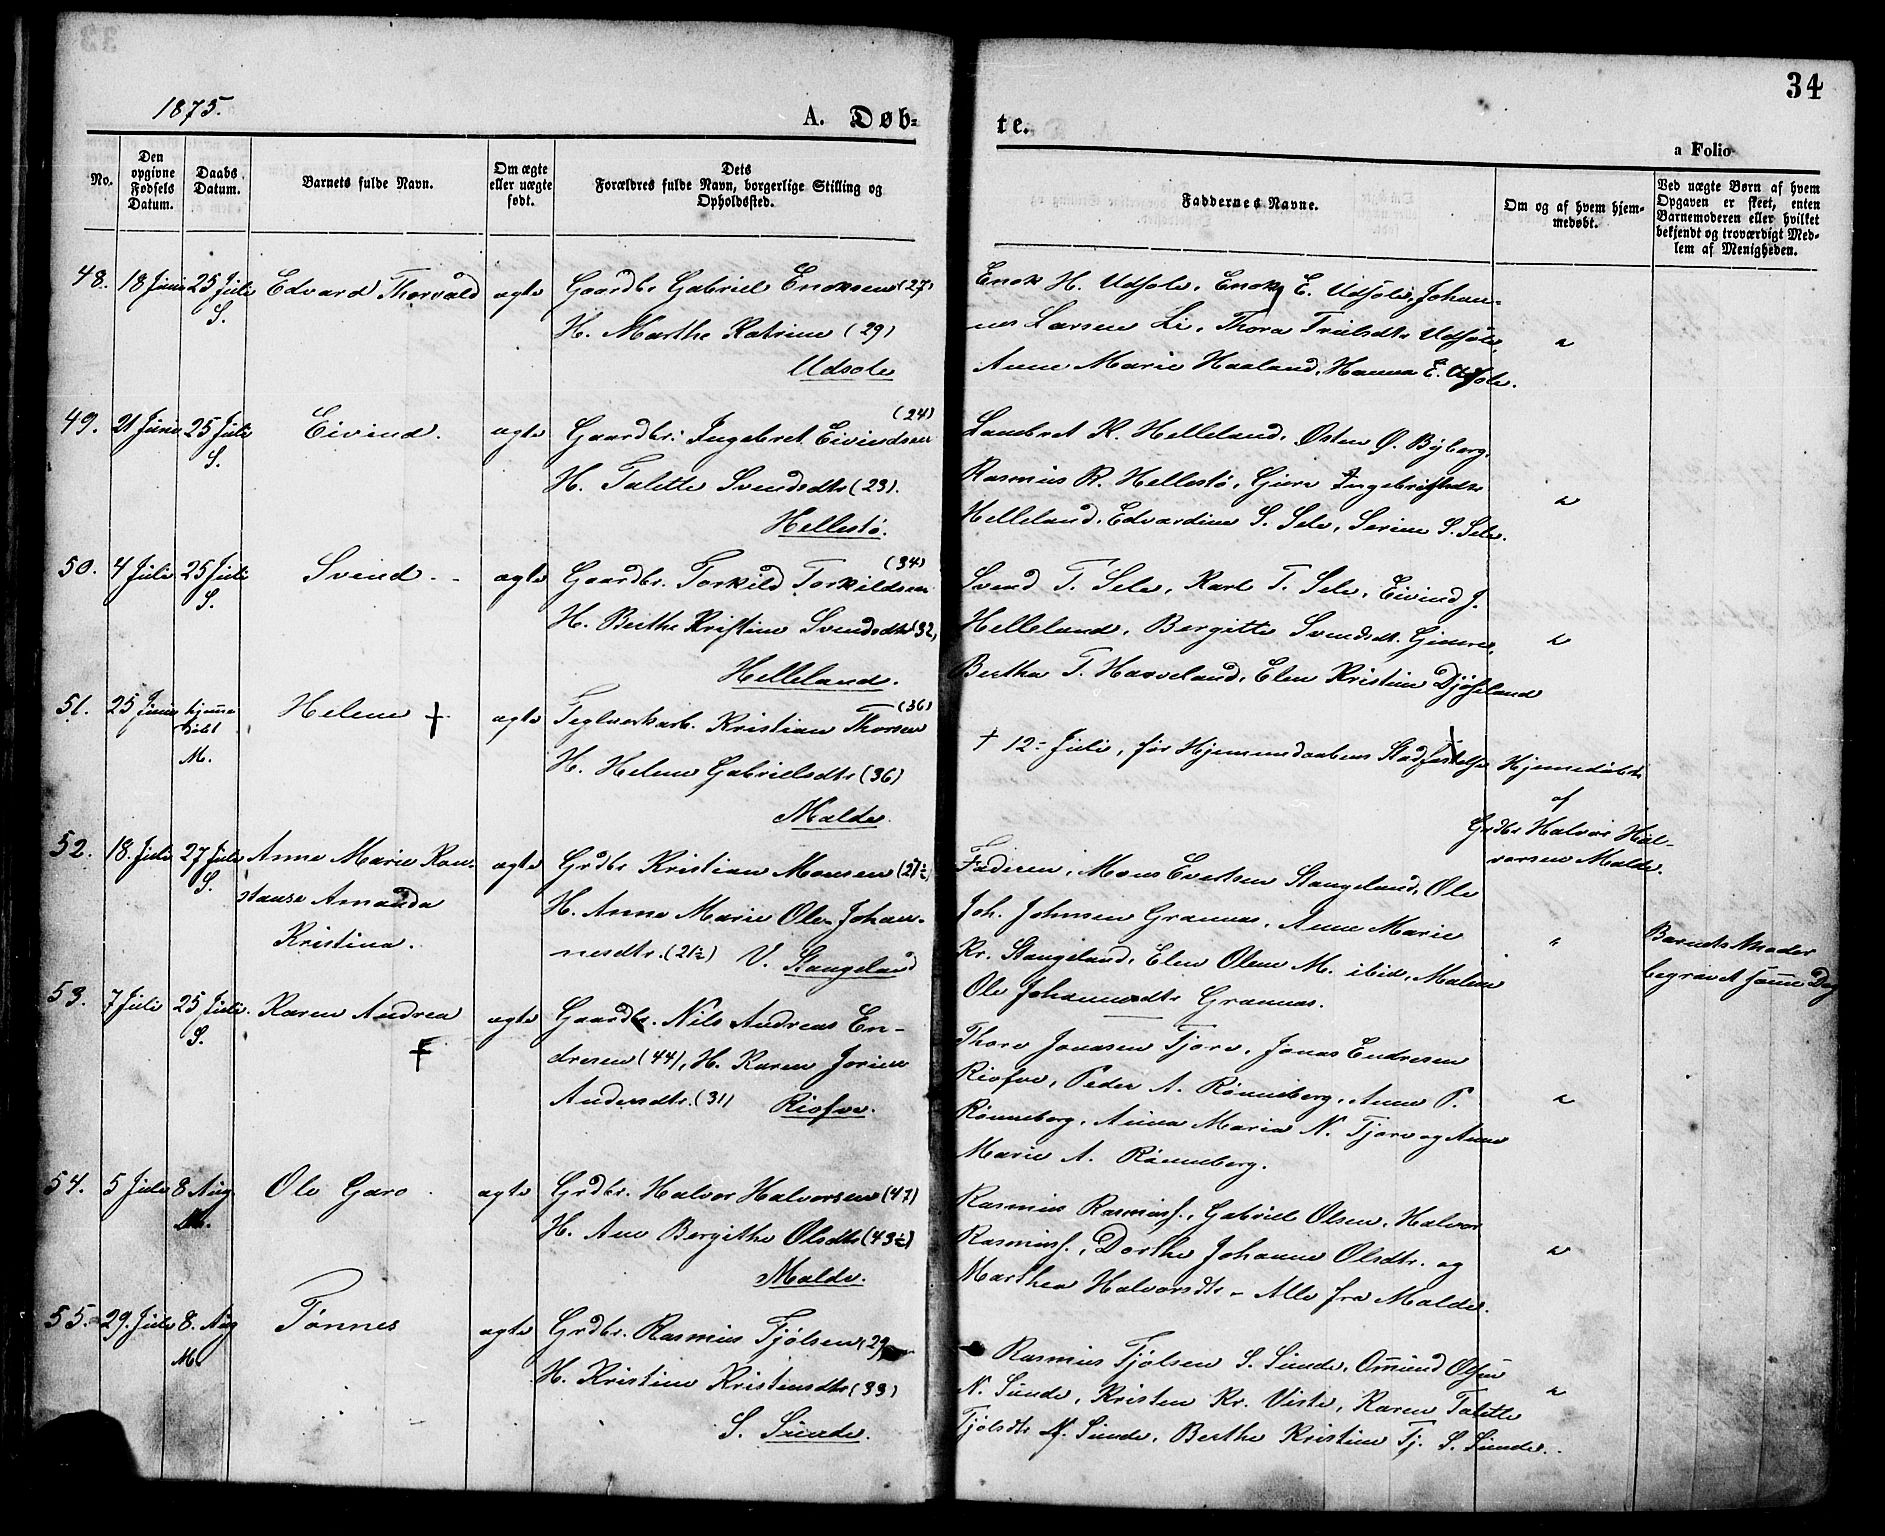 34
1875.
A. Døb-
te.
a Folio
No.
Den opgivne Fødsels Datum.
Daabs Datum.
Barnets fulde Navn.
Om ægte eller uægte født.
Dets
Forældres fulde Navn, borgerlige Stilling og Opholdssted.
Faddernes Navne.
Om og af hvem hjemmedøbt.
Ved uægte Børn af hvem Opgaven er skeet, enten Barnemoderen eller hvilket bekjendt og troværdigt Medlem af Menigheden.
48. 18 Juni 25 Juli Edvard Thorvald ægte Gaardbr. Gabriel Enoksen (27)
S.
H. Marthe Katrine (29)
Udsole
Enok H. Udsole, Enok E. Udsole, Johan-
nes Larsen Li, Thora Trulsdtr Udsole,
Anne Marie Haaland, Hanna E. Udsole.
"
49. 21 Juni 25 Juli Eivind. ægte Gaardbr. Ingebret Eivindsen
(24)
S.
H. Talette Svendsdtr (23).
Hellestø.
K. Helleland, Østen Ø. Byberg,
Rasmus R. Hellestø,
Helleland, Edvardine S. Sele, Serine S. Sele.
"
50. 4 Juli 25 Juli Svend. ægte Gaardbr. Torkild Torkildsen
(34)
S.
H. Berthe Kristine Svendsdtr (32)
Helleland.
Svend T. Sele, Karl T. Sele, Eivind J.
Helleland, Bergitte Svendsdt.
Bertha T. Haveland, Elen Kristine Djøseland
"
51. 25 Juni hjemme døbt Helene † ægte Teglverksarb. Kristian Thorsen
(36)
M.
H. Helene Gabrielsdtr (36)
Malde.
† 12 Juli, før Hjemmedaabens Stadfæstelse
Hjemmedøbt
af
Grdbr Halvor Hal-
vorsen Malde.
52. 18. Juli 27 Juli Anne Marie Kon-
S.
stanse Amanda
Kristina.
ægte Grdbr Kristian Monsen (27½)
H. Anne Marie Ole-Johan-
nesdtr. (21½) V. Stangeland
Faderen, Mons Evertsen Stangeland, Ole
Joh. Johnsen Grannas, Anne Marie
Kr. Stangeland, Elen Olene M. ibid, Malene
Ole Johannesdtr Grannas.
"
Barnets Moder
begravet samme Dag
53. 7 Juli 25 Juli. Karen Andrea † ægte Gaardbr. Nils Andreas En-
S.
dresen (44), H. Karen Jorine
Andersdtr. (31) Riofve.
Thore Jonasen Tjore, Jonas Endresen
Riofve, Peder A. Rønneberg, Anne P.
Rønneberg, Anna Maria N. Tjore og Anne
Marie A. Rønneberg.
"
54. 5 Juli 8 Aug. Ole Garo ægte Grdbr. Halvor Halvorsen (47)
M.
H. Ane Bergithe Olsdtr (43½)
Malde.
Rasmus Rasmuss., Gabriel Olsen, Halvor
Rasmuss., Dorthe Johanne Olsdtr. og
Marthea Halvorsdtr – Alle fra Malde.
"
55. 29. Juli 8. Aug Tønnes ægte Grdbr. Rasmus Tjølsen (29
M.
H. Kristine Kristensdtr (33)
S. Sunde.
Rasmus Tjølsen S. Sunde, Omund Olsen
N. Sunde, Kristen Kr. Viste, Karen Talette
Tjølsdtr N. Sunde, Berthe Kristine Tj. S. Sunde.
"